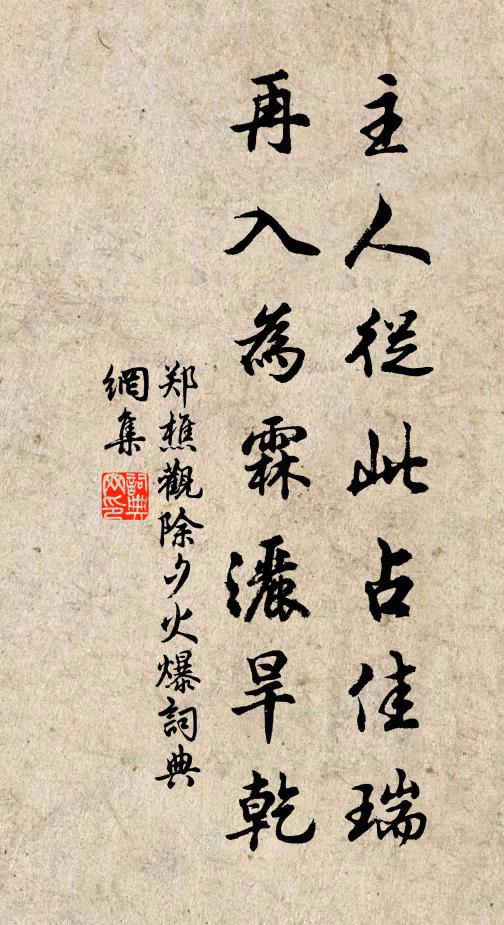 主人從此占佳瑞
再入為霖灑旱乾
郑樵觀除夕火爆詞典
網集
詞典
网印